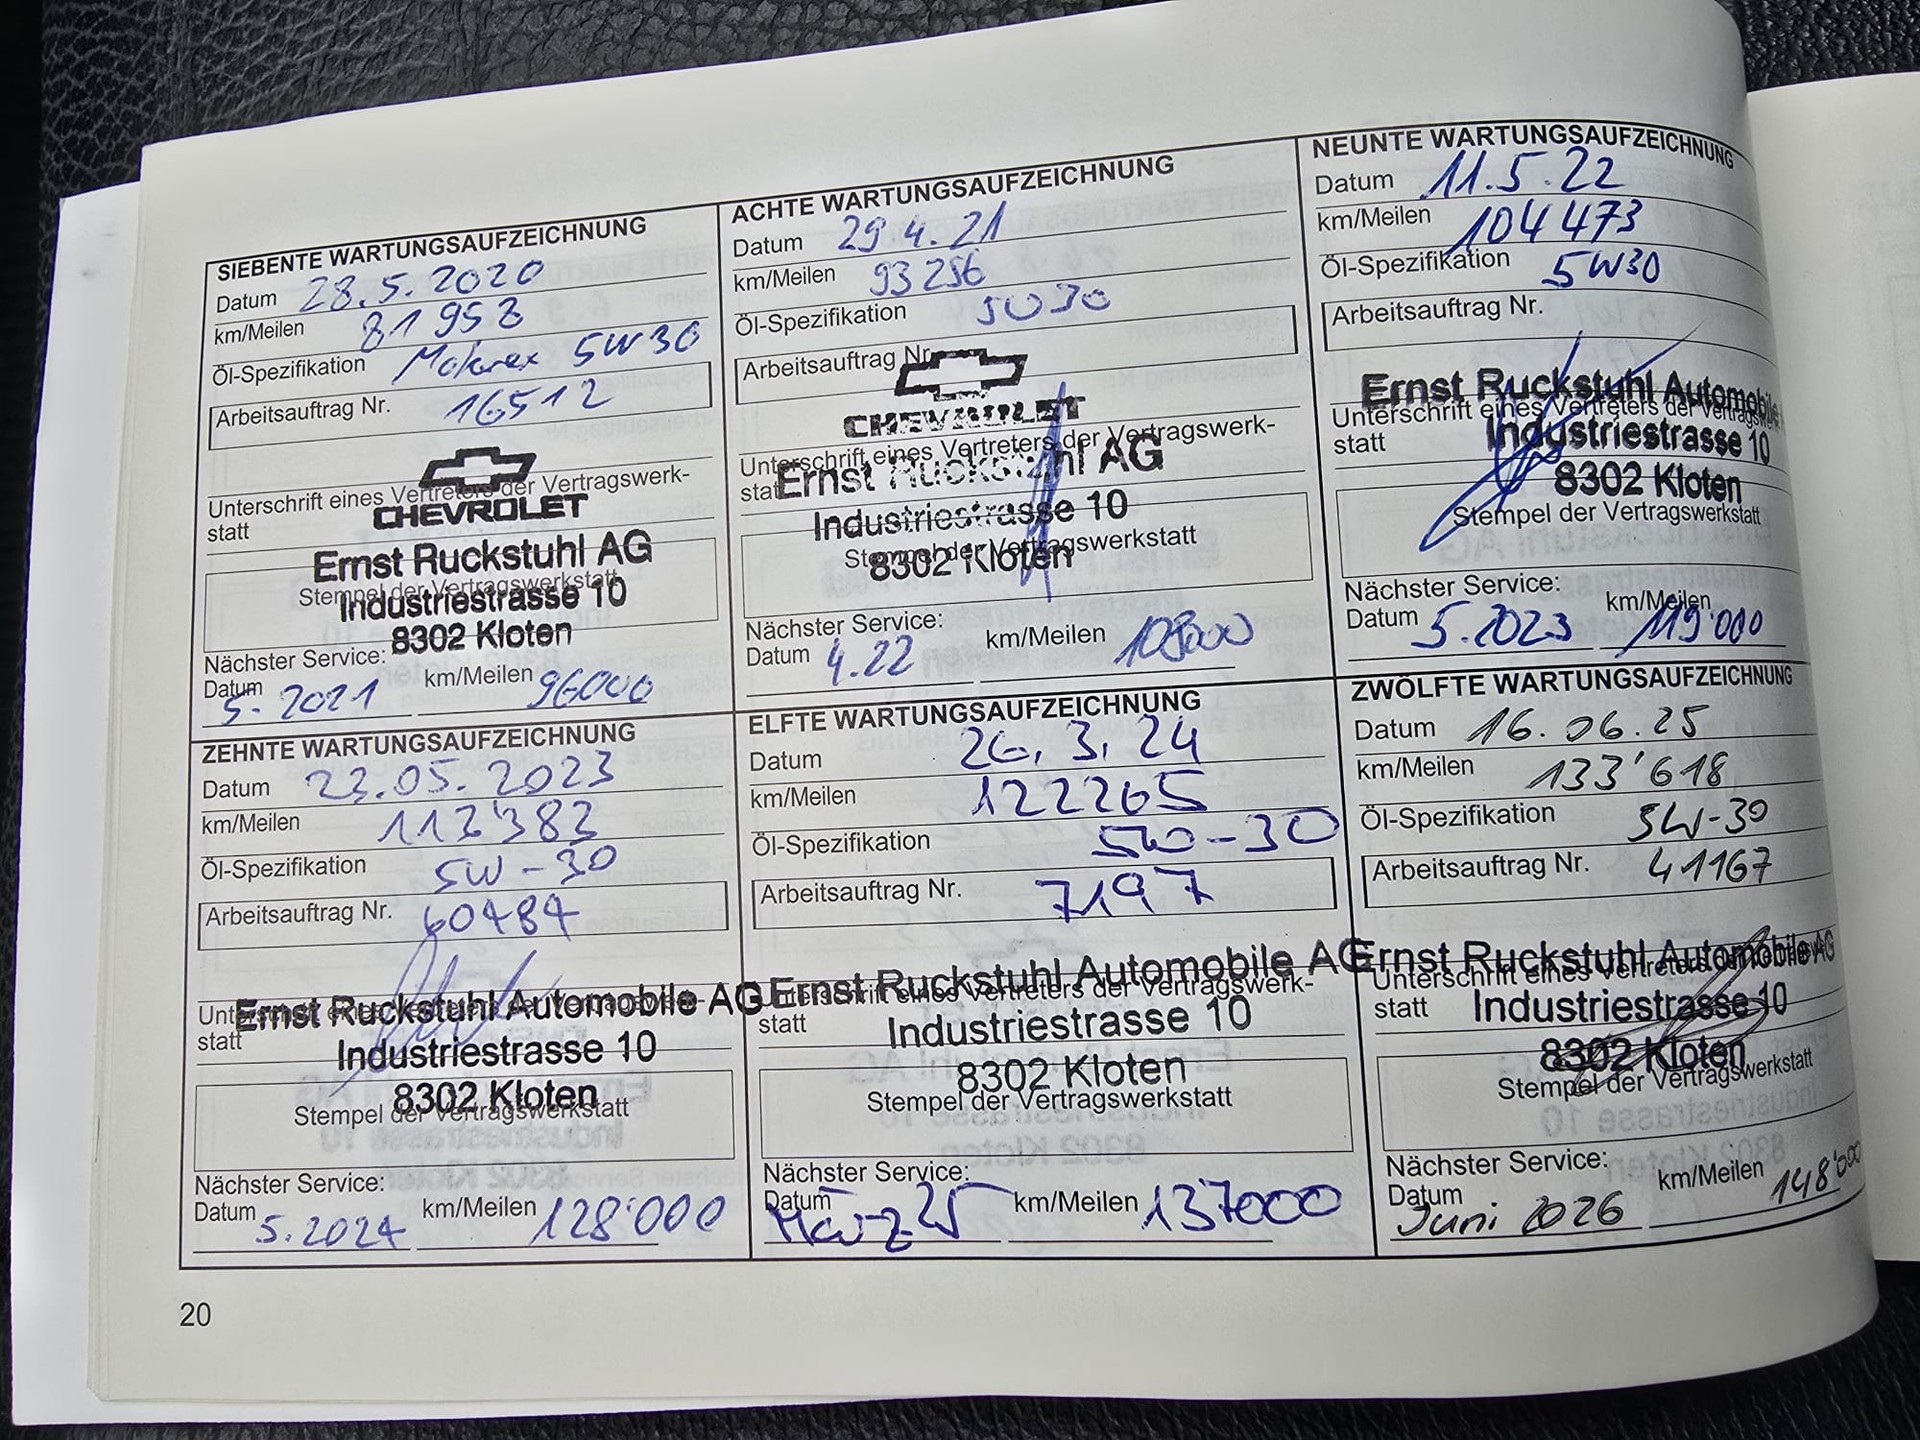 SIEBENTE WARTUNGSAUFZEICHNUNG
Datum 28.5.2020
km/Meilen 81 958
Öl-Spezifikation Motorex 5W30
Arbeitsauftrag Nr. 16512
CHEVROLET
Unterschrift eines Vertreters der Vertragswerk-
statt
Ernst Ruckstuhl AG
Stempel der Vertragswerkstatt
Industriestrasse 10
8302 Kloten
Nächster Service:
Datum 5.2021 km/Meilen 96000
ACHTE WARTUNGSAUFZEICHNUNG
Datum 29.4.21
km/Meilen 93 256
Öl-Spezifikation
Arbeitsauftrag Nr.
CHEVROLET
Unterschrift eines Vertreters der Vertragswerk-
statt
Ernst Ruckstuhl AG
Industriestrasse 10
Stempel der Vertragswerkstatt
8302 Kloten
Nächster Service:
Datum 4.22 km/Meilen 108000
NEUNTE WARTUNGSAUFZEICHNUNG
Datum 11.5.22
km/Meilen 104473
Öl-Spezifikation 5W30
Arbeitsauftrag Nr.
Ernst Ruckstuhl Automobile
Unterschrift eines Vertreters der Vertrags
statt
Industriestrasse 10
8302 Kloten
Stempel der Vertragswerkstatt
Nächster Service:
Datum 5.2023 km/Meilen 119'000
ZEHNTE WARTUNGSAUFZEICHNUNG
Datum 23.05.2023
km/Meilen 113'383
Öl-Spezifikation 5W-30
Arbeitsauftrag Nr. 60484
Ernst Ruckstuhl Automobile AG
Unterschrift eines Vertreters der Vertragswerk-
statt
Industriestrasse 10
8302 Kloten
Stempel der Vertragswerkstatt
Nächster Service:
Datum 5.2024 km/Meilen 128'000
ELFTE WARTUNGSAUFZEICHNUNG
Datum 26.3.24
km/Meilen 122265
Öl-Spezifikation 5W-30
Arbeitsauftrag Nr. 7197
Ernst Ruckstuhl Automobile AG
Unterschrift eines Vertreters der Vertragswerk-
statt
Industriestrasse 10
8302 Kloten
Stempel der Vertragswerkstatt
Nächster Service:
Datum März 25 km/Meilen 137000
ZWÖLFTE WARTUNGSAUFZEICHNUNG
Datum 16.06.25
km/Meilen 133'618
Öl-Spezifikation 5W-30
Arbeitsauftrag Nr. 41167
Ernst Ruckstuhl Automobile AG
Unterschrift eines Vertreters der
statt
Industriestrasse 10
8302 Kloten
Stempel der Vertragswerkstatt
Nächster Service:
Datum Juni 2026 km/Meilen 148'000
20